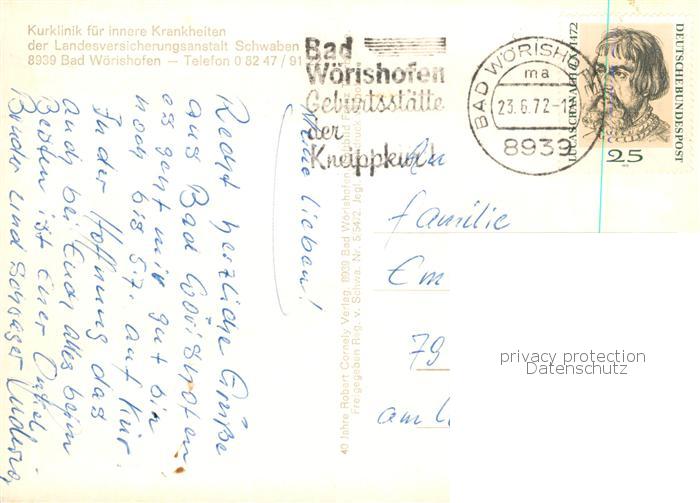 Kurklinik für innere Krankheiten
der Landesversicherungsanstalt Schwaben
8939 Bad Wörishofen — Telefon 0 82 47 / 91
Bad
Wörishofen
Geburtsstätte
der
Kneippkur!
BAD WÖRISHOFEN
ma
23.6.72-1
8939
DEUTSCHE BUNDESPOST
LUCAS CRANACH 1472
25
Meine lieben!
Recht herzliche Grüße
aus Bad Wörishofen
es geht mir gut bin
noch bis 5.7. auf Kur.
In der Hoffnung das
auch bei Euch alles beim
Besten ist Euer Onkel
Bruder und Schwager Ludwig
40 Jahre Robert Cornely Verlag, 8939 Bad Wörishofen
Freigegeben Reg. v. Schwa. Nr. 5.54/2. Jegl.
An
familie
Em
79
am
privacy protection
Datenschutz